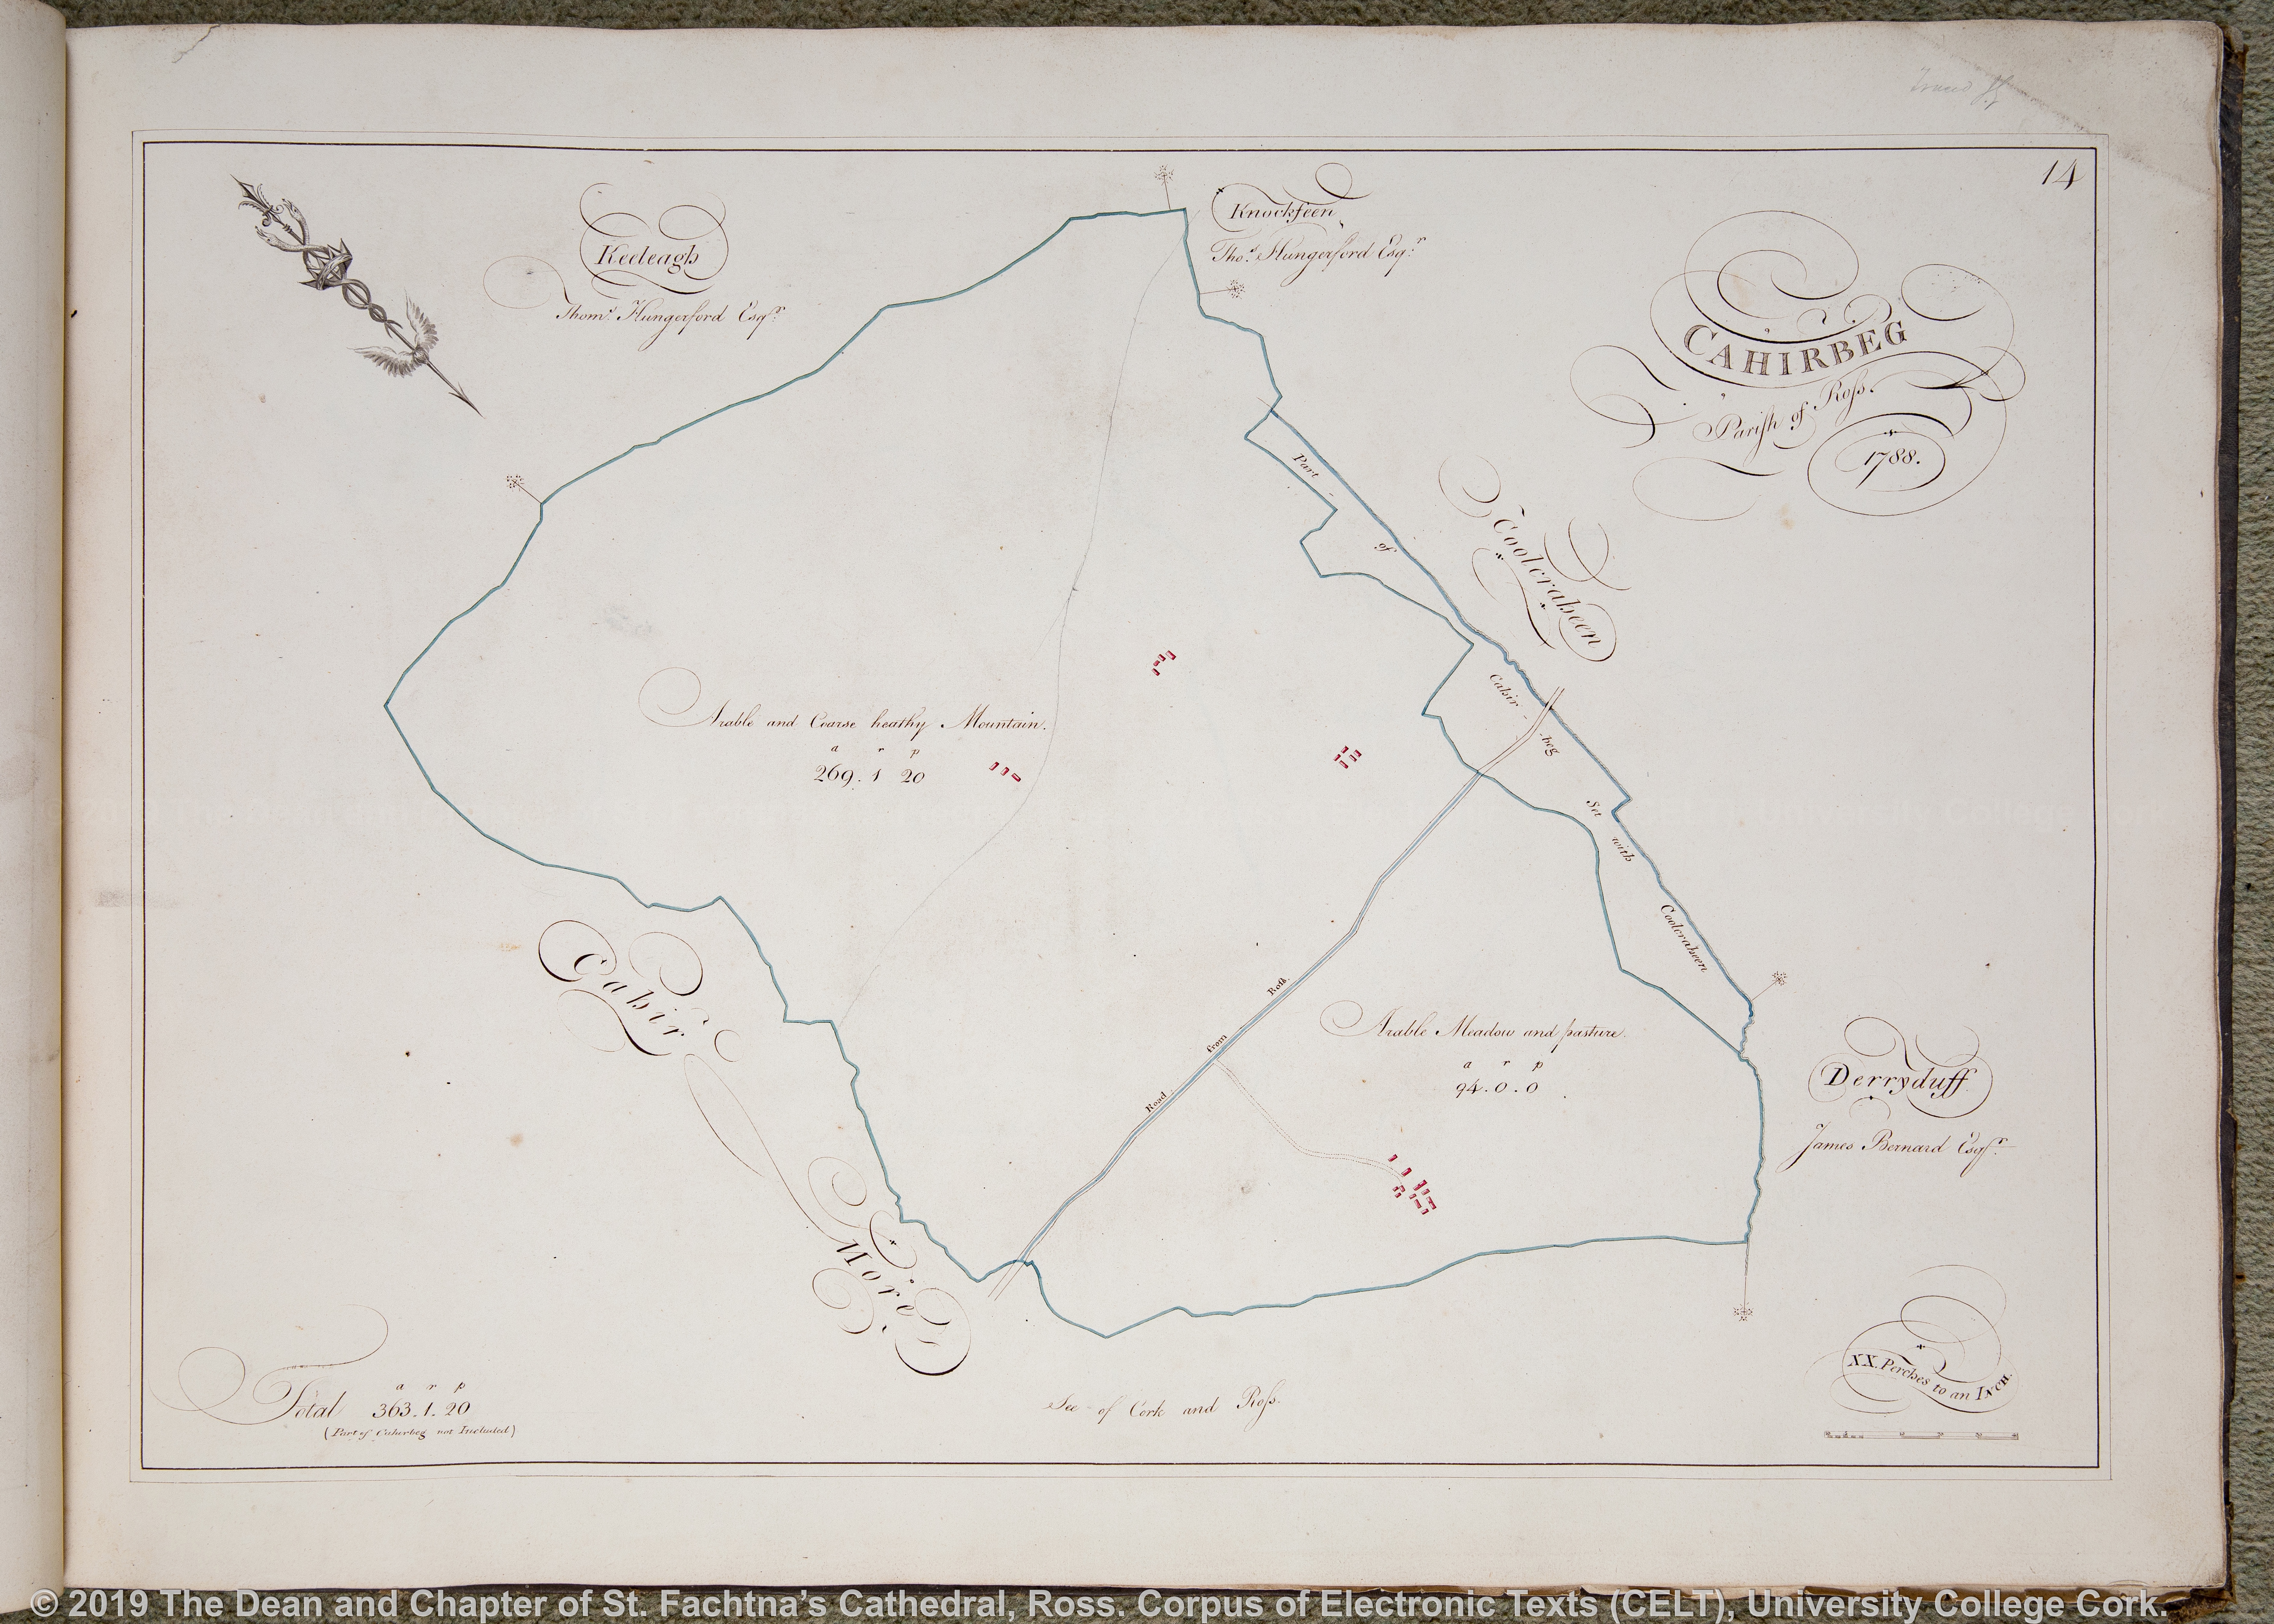 14
Keeleagh
Thom.s Hungerford Esq.r
Knockfeen
Tho.s Hungerford Esq.r
CAHIRBEG
Parish of Ross.
1788.
Coolcraheen
Part of Cahir-beg Set with Coolcraheen
Arable and Coarse heathy Mountain.
a r p
269. 1 20
Cahir More
Road from Ross
Arable Meadow and pasture.
a r p
94. 0. 0
Derryduff
James Bernard Esq.r
See of Cork and Ross.
XX. Perches to an INCH.
a r p
Total 363. 1. 20
(Part of Cahirbeg not Included)
© 2019 The Dean and Chapter of St. Fachtna's Cathedral, Ross. Corpus of Electronic Texts (CELT), University College Cork.